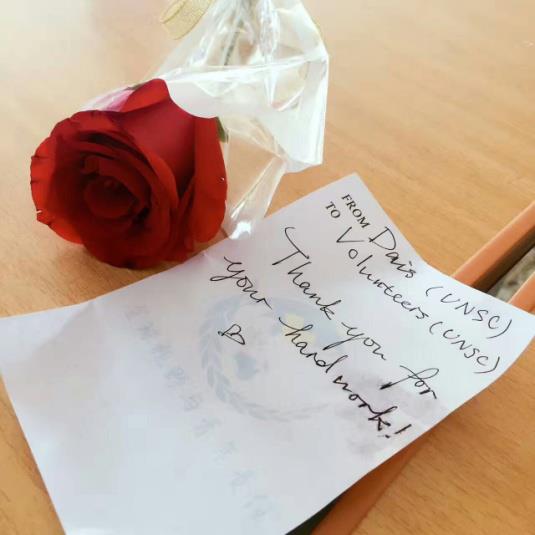 FROM Dais (UNSC)
TO Volunteers (UNSC)
Thank you for
your hard work!